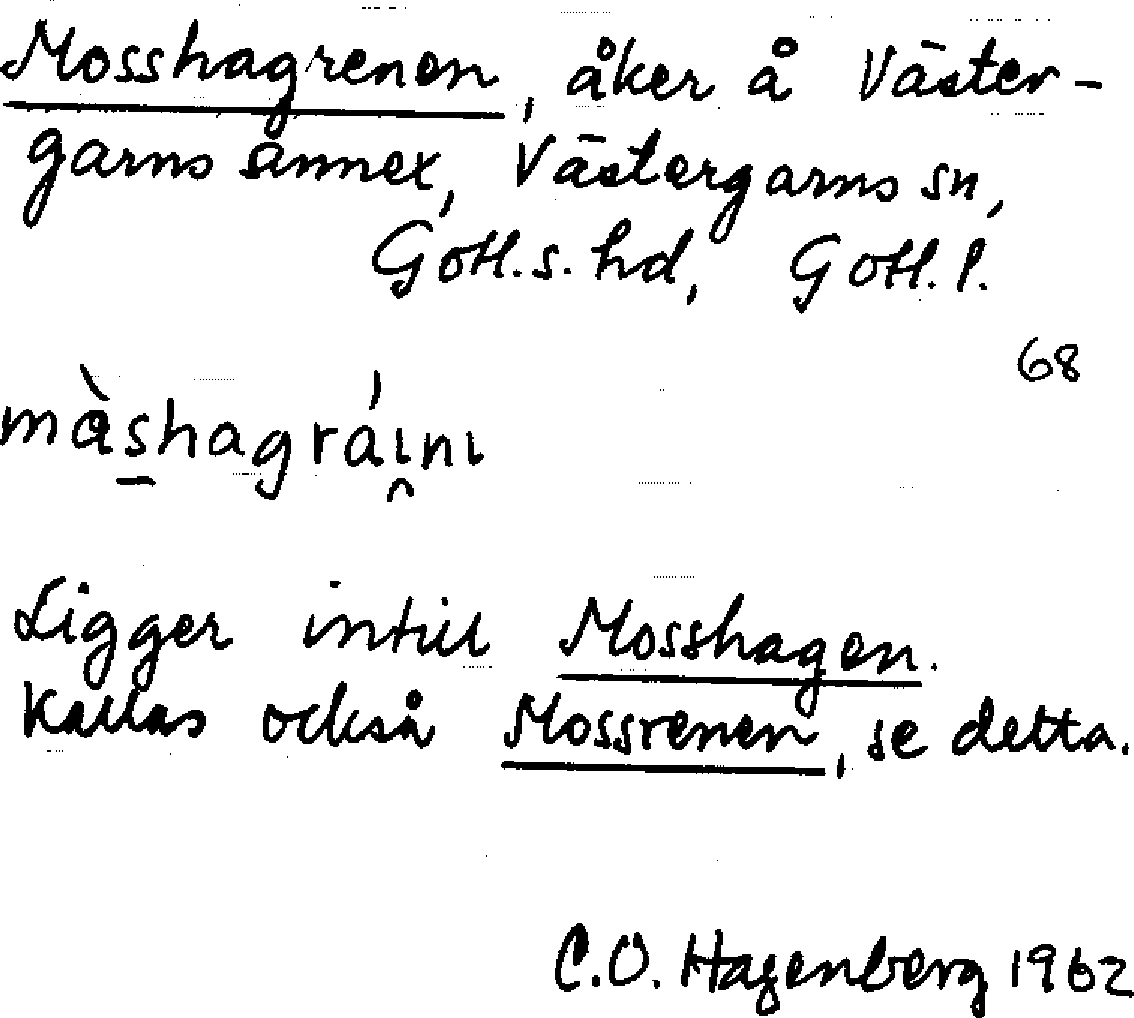 Mosshagrenen, åker å Väster-
garns annex, Västergarns sn,
Gotl. s. hd, Gotl. l.
68
màs̲hagráı̯nı
Ligger intill Mosshagen.
Kallas också Mossrenen, se detta.
C.O. Hagenberg 1962